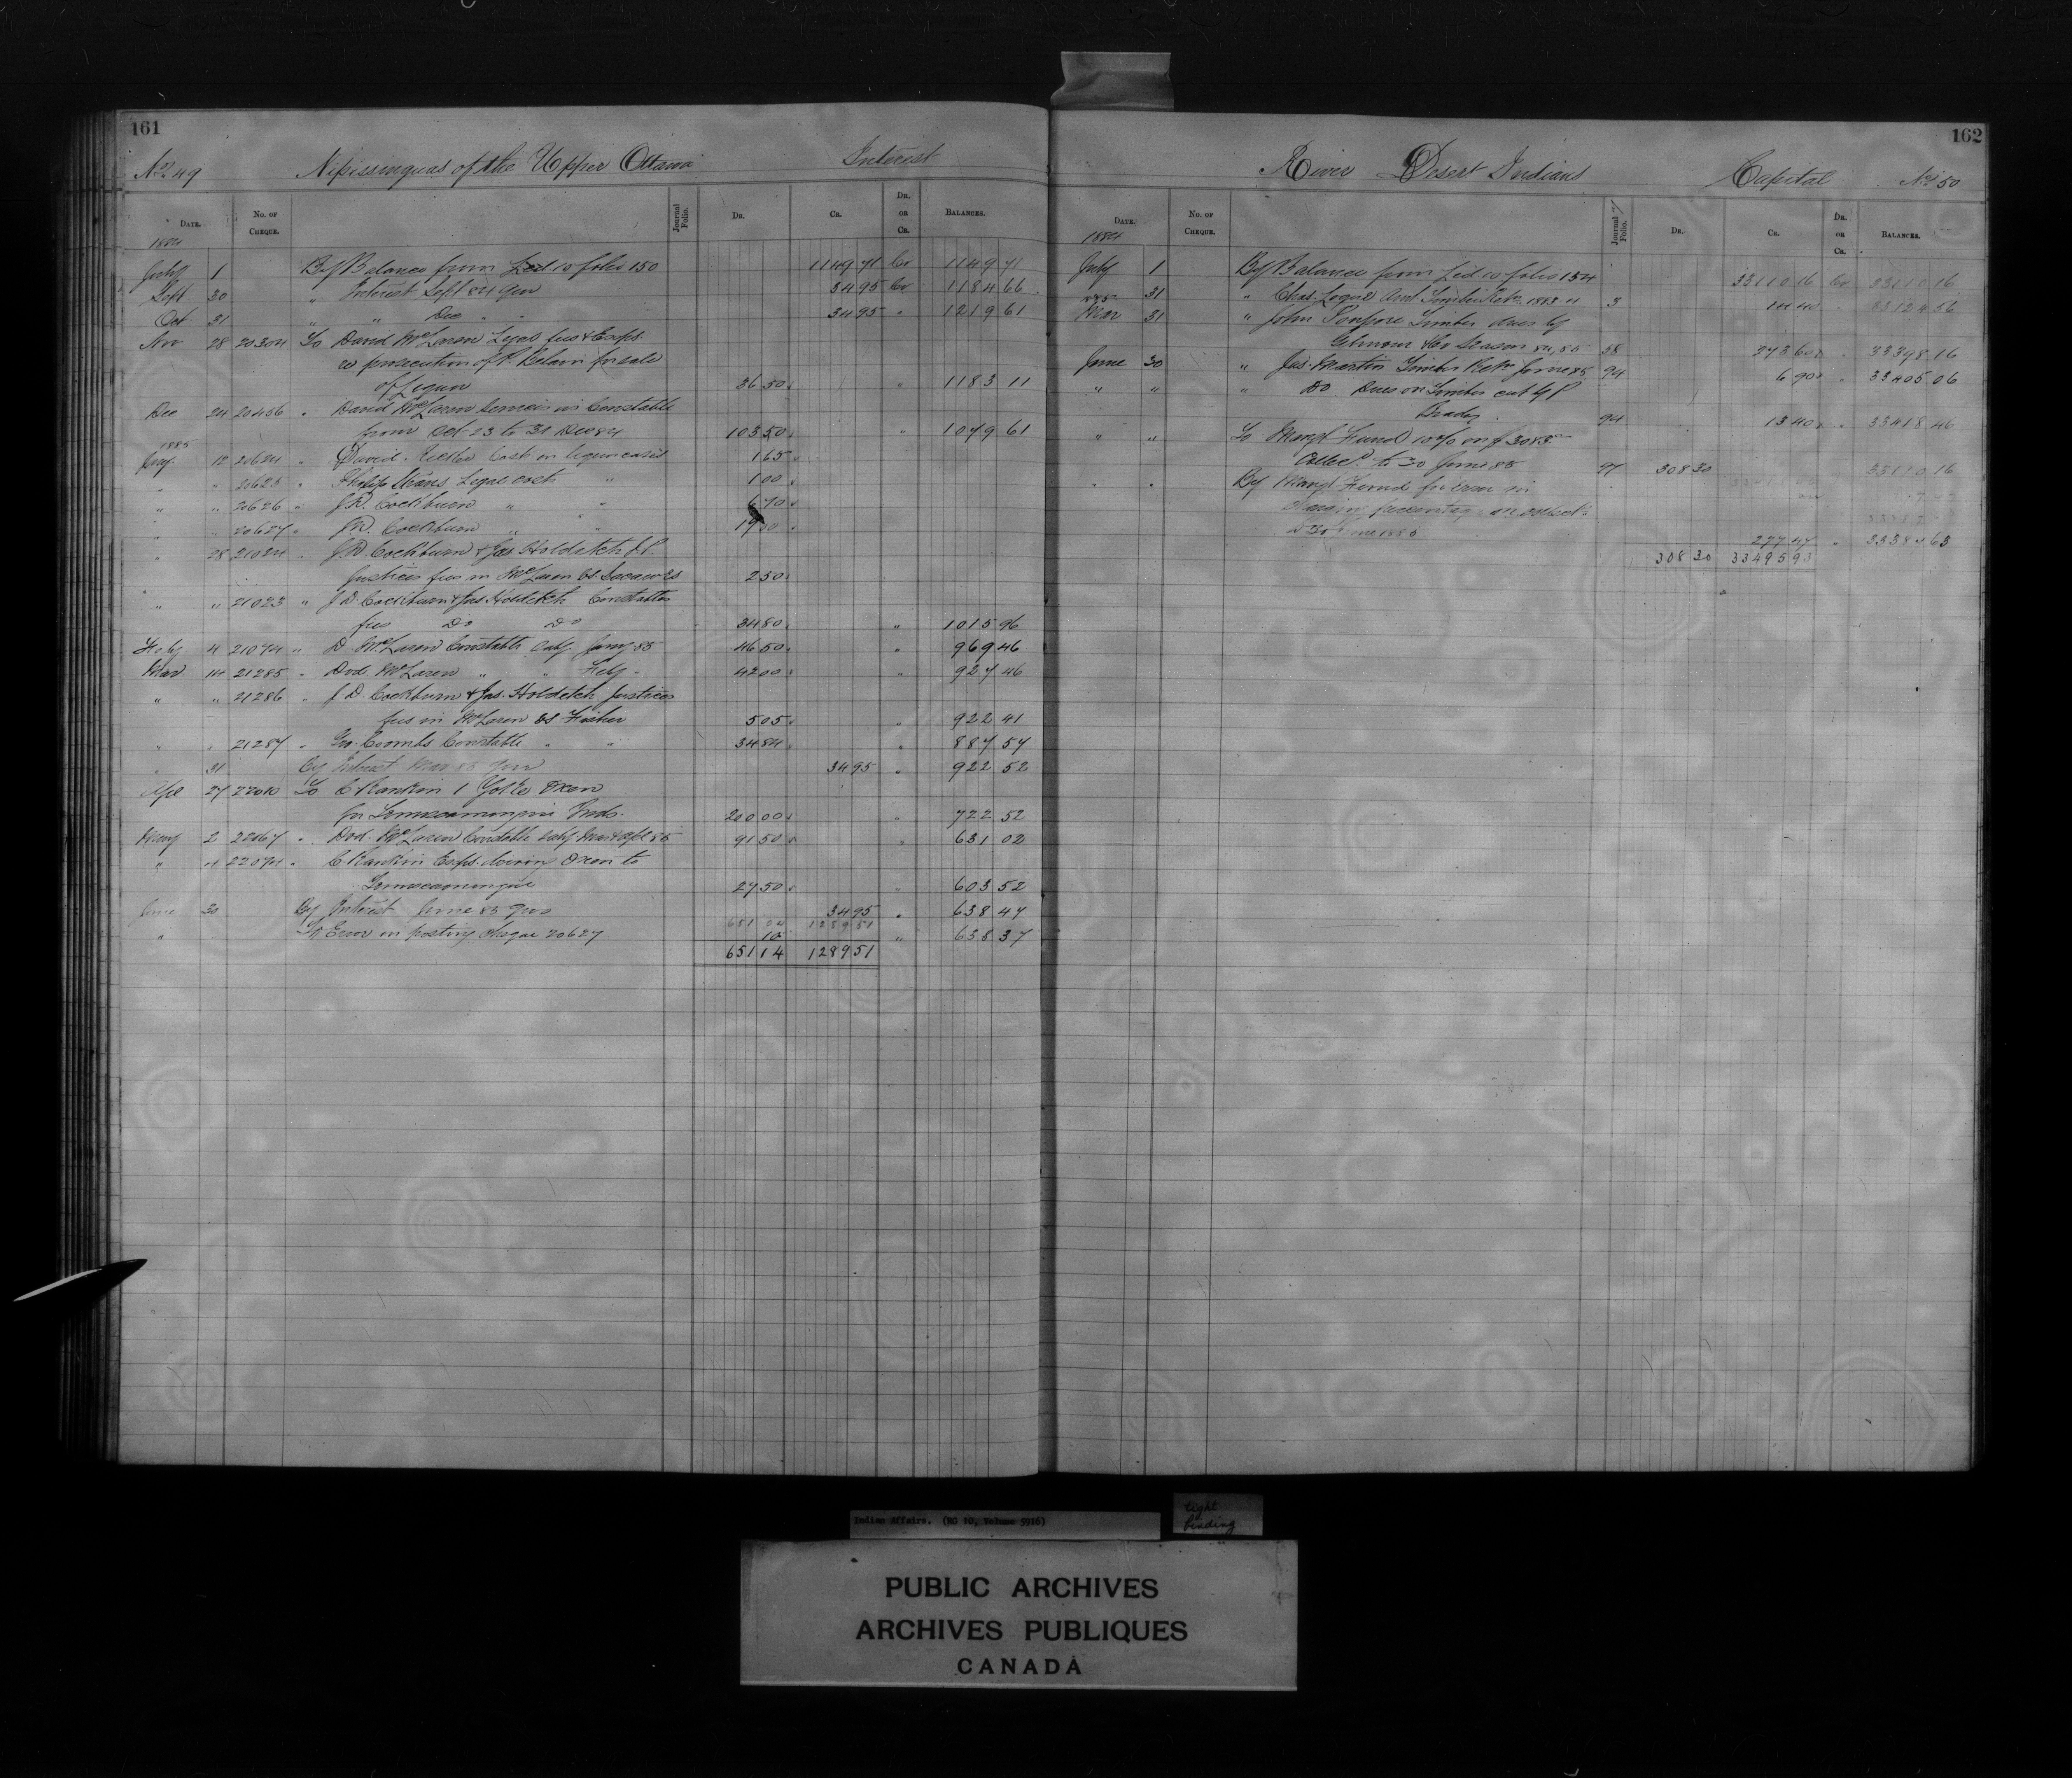 161
No. 49 Nipissingues of the Upper Ottawa Interest
DATE. No. OF CHEQUE. Journal Folio. DR. CR. DR. or CR. BALANCES.
1884
July 1 By Balance from Led 10 folio 150 1149 71 Cr 1149 71
Sept 30 " Interest Sept 84 Qrs 34 95 Cr 1184 66
Oct 31 " " Dec " " 34 95 " 1219 61
Nov 28 20304 To David McLaren Legal fees & Exps.
re prosecution of P. Belair for sale
of Liquor 36 50 " 1183 11
Dec 24 20456 " David McLaren Services as Constable
from Oct 23 to 31 Dec 84 103 50 " 1079 61
1885
Jany. 12 20624 " David Cost in liquor cases 1 65
" " 20625 " Philip Legal cost " 1 00
" " 20626 " J.D. Cockburn " " 6 70
" " 20627 " J.D. Cockburn " " 19
" 28 21024 " J.D. Cockburn & Jas Holditch J.P.
Justices fees in McLaren vs 2 50
" " 21023 " J D Cockburn & Jas. Holditch Constables
fees Do Do 34 80 " 1015 96
Feby 4 21074 " D. McLaren Constable Saly. Jany 85 46 50 " 969 46
Mar 14 21285 " Dvd. McLaren " " Feby " 42 00 " 927 46
" " 21286 " J D. Cockburn & Jas. Holditch Justices
fees in McLaren vs Fisher 5 05 " 922 41
" " 21287 " Geo. Coombs Constable " " 34 84 " 887 57
" 31 By Interest Mar 85 Qrs 34 95 " 922 52
Apl 27 22010 To C Rankin 1 Yoke Oxen
for Temiscamingue Inds. 200 00 " 722 52
May 2 22067 " Dvd. McLaren Constable Saly. Mar & Apl 85 91 50 " 631 02
" 4 22074 " C. Rankin Exps. driving Oxen to
Temiscamingue 27 50 " 603 52
June 30 By Interest June 85 Qrs 34 95 " 638 47
651 04 1289 51
" To Error in posting cheque 20627 10 " 638 37
651 14 1289 51
162
River Desert Indians Capital No. 50
DATE. No. OF CHEQUE. Journal Folio. DR. CR. DR. or CR. BALANCES.
1884
July 1 By Balance from Led. 10 folio 154 33110 16 Cr 33110 16
" 31 " Chas. Logue Amt Timber Retn. 1883-4 3 14 40 " 33124 56
1885
Mar 31 " John Timber dues by
Gilmour & Co Season 84, 85 58 273 60 " 33398 16
June 30 " Jas. Martin Timber Retn June 85 94 6 90 " 33405 06
" " " Do Dues on Timber cut by P
Brady 94 13 40 " 33418 46
" " To Mangt Fund 10% on $3083
Collecd. to 30 June 85 97 308 30 33110 16
" " By Mangt Fund for Error in
charging percentage on collect.
to 30 June 1885 277 47 " 33387 63
308 30 33495 93
Indian Affairs. (RG 10, Volume 5926)
tight
binding
PUBLIC ARCHIVES
ARCHIVES PUBLIQUES
CANADA